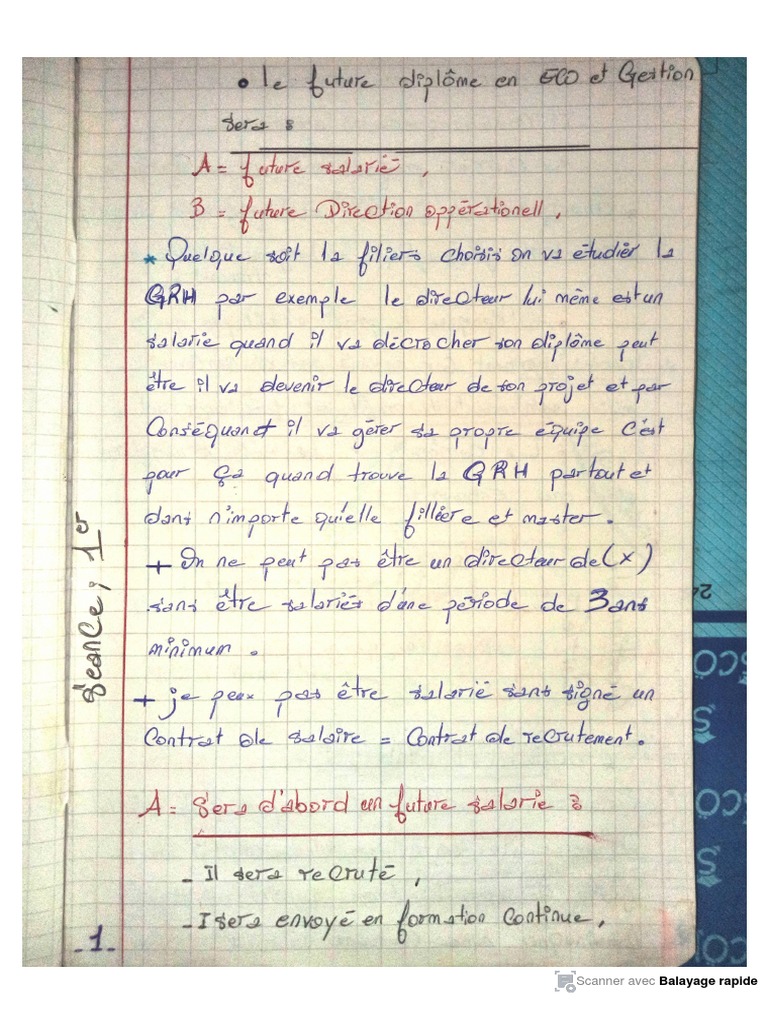 • le future diplôme en ECO et Gestion
sera :
A = future salarié,
B = future Direction oppérationell,
* Quelque soit la filiers choisis on va étudier la
GRH par exemple le directeur lui même est un
salarie quand il va décrocher son diplôme peut
être il va devenir le directeur de son projet et par
Conséquant il va gérer sa propre equipe c'est
pour ça quand trouve la GRH partout et
dans n'importe qu'elle fillière et master.
+ On ne peut pas être un directeur de (x)
sans être salariés d'une période de 3 ans
minimum.
+ je peux pas être salarié sans signé un
Contrat de salaire = Contrat de recrutement.
Seance, 1er
A = Sera d'abord un future salarie :
- Il sera recruté,
- I sera envoyé en formation continue,
-1-
Scanner avec Balayage rapide